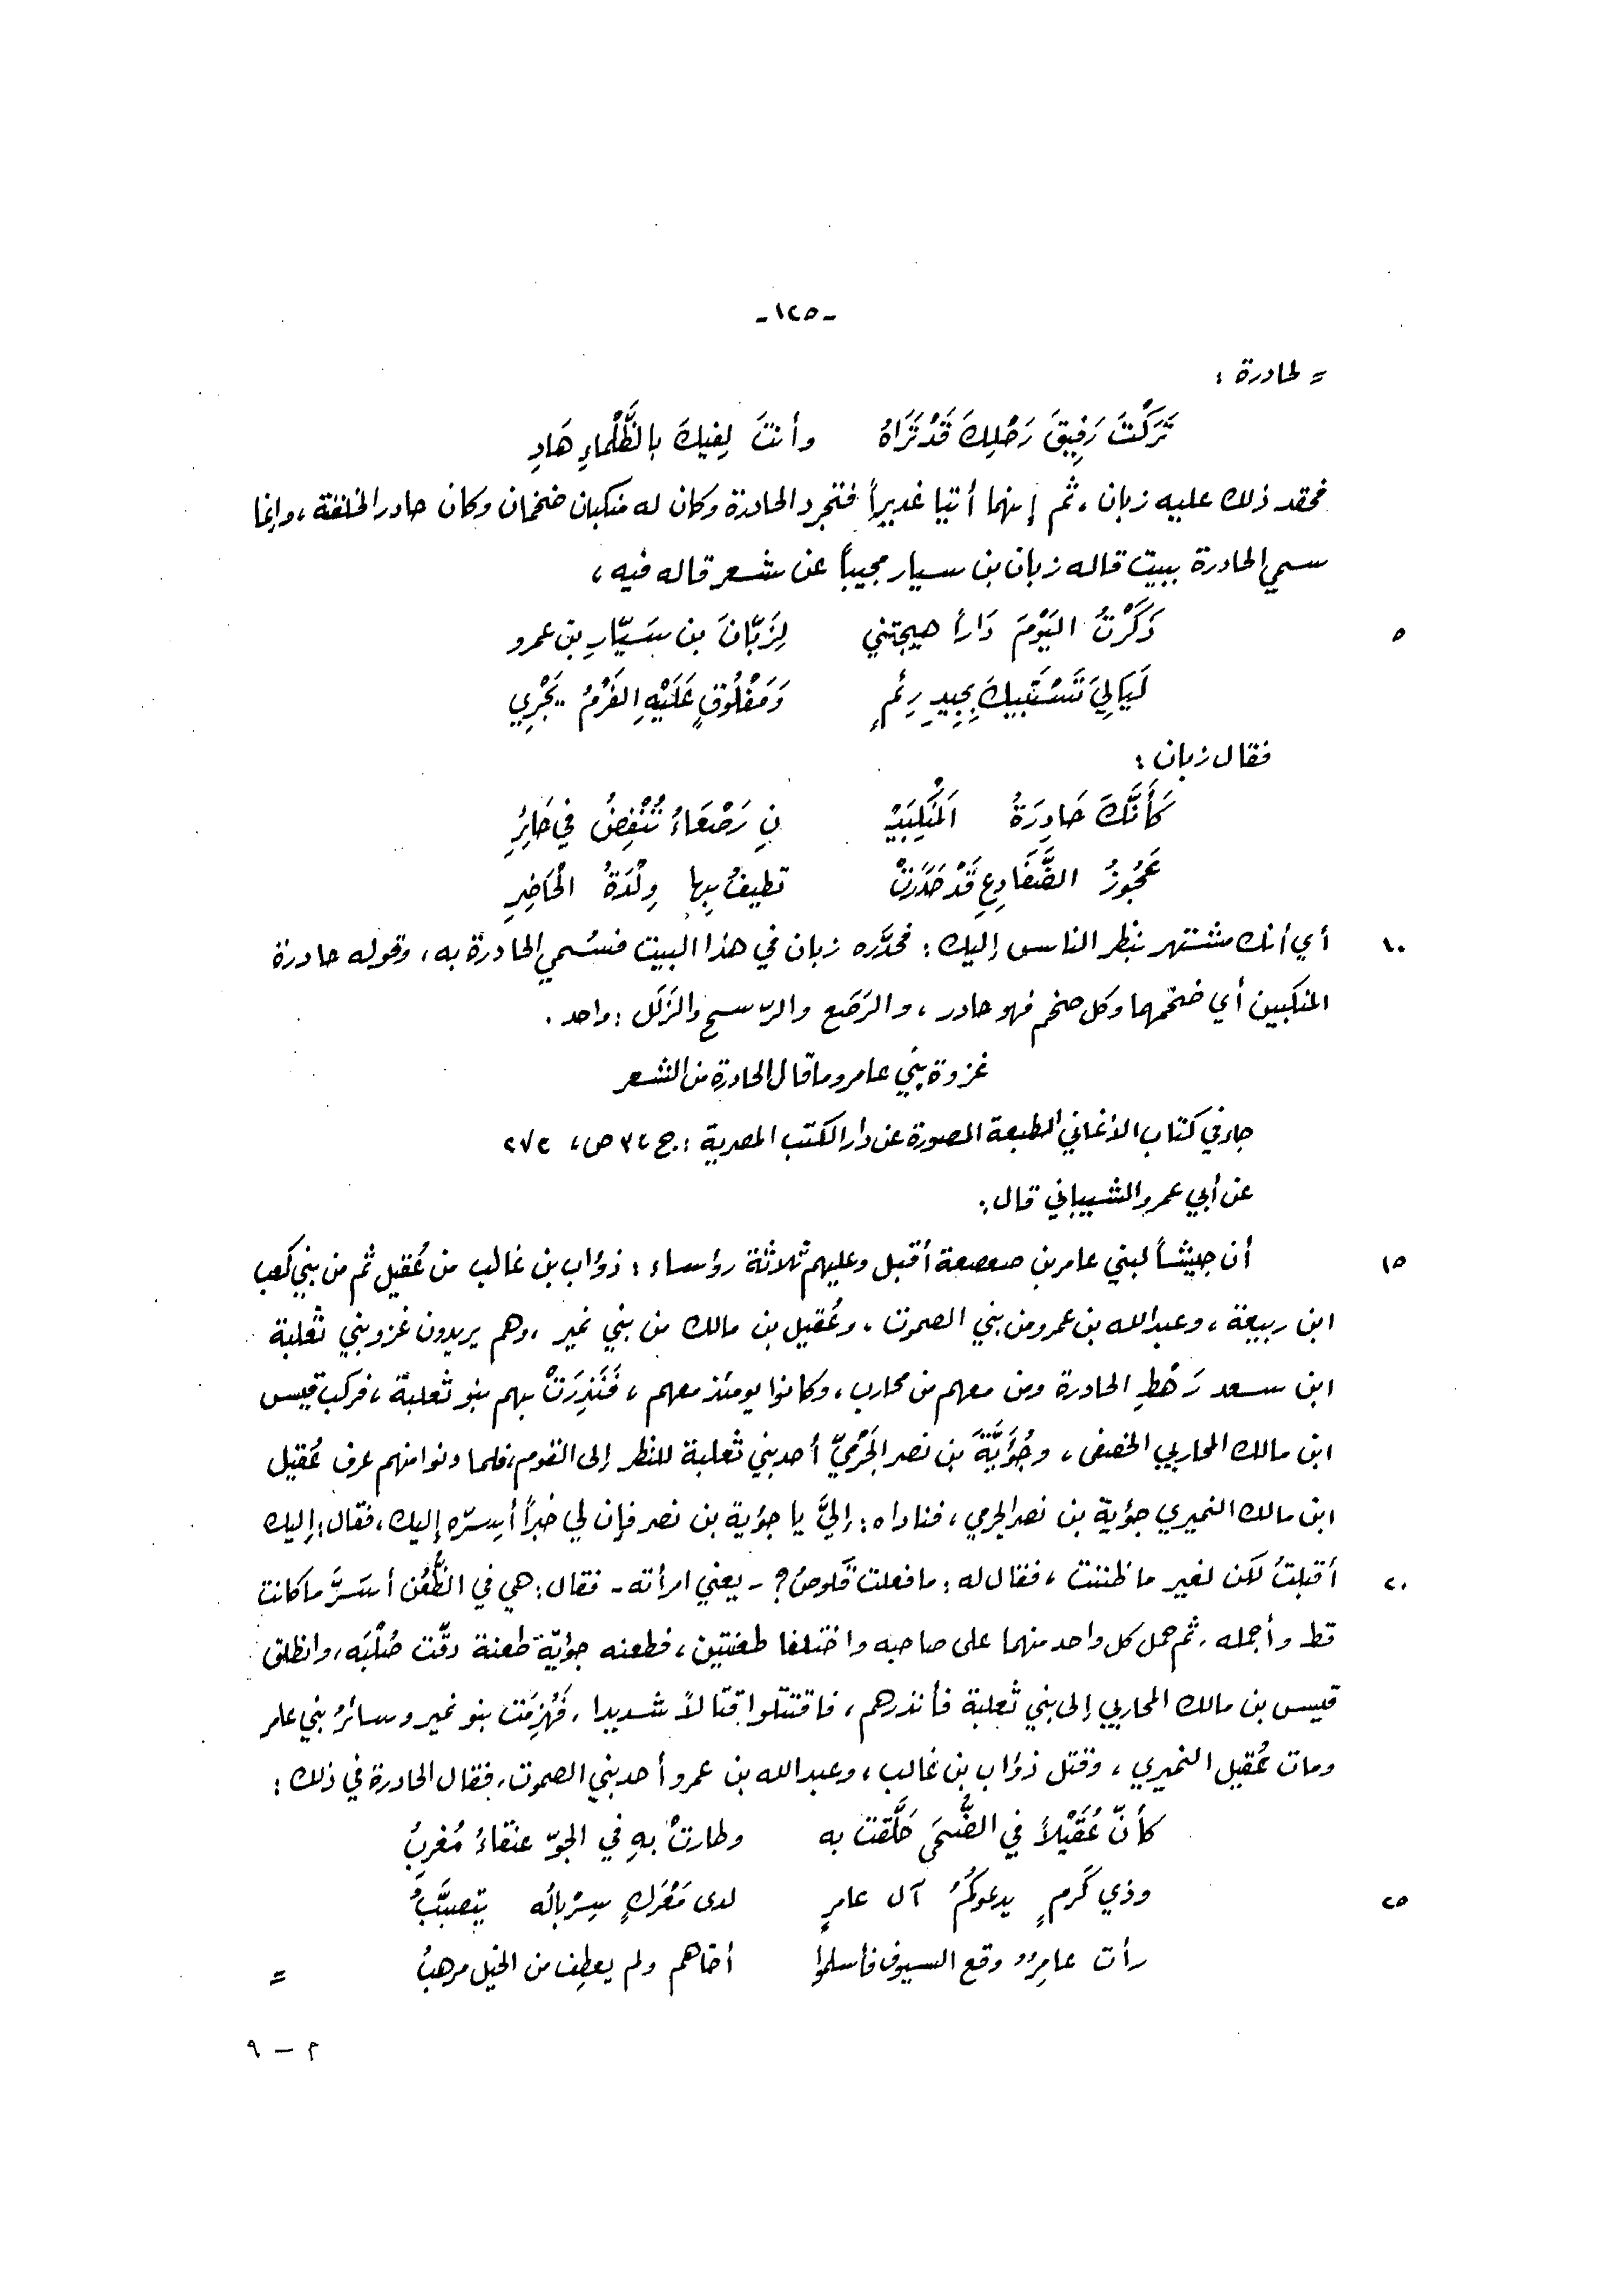 -١٢٥-
= لحادرة :
تَرَكْتَ رَفِيقَ رَحْلِكَ قَدْ تَرَاهُ وأنتَ لِفيكَ بالظَّلْماءِ هَادِ
فحقد ذلك عليه زبان ، ثم إنهما أتيا غديراً فتجرد الحادرة وكان له منكبان ضخمان وكان حادر الخلفة ، وانما
سمي الحادرة ببيت قاله زبان بن سيار مجيباً عن شعر قاله فيه ،
٥ ذَكَرْتُ اليَوْمَ دَاراً هيجتني لِزَبَّانَ بن سَيّارِ بن عمرو
لَيَالِيَ تَسْتَبيكَ بِجِيدِ رِئْمٍ وَمَفْلُوقٍ عَلَيْهِ الفَرْمُ يَجْرِي
فقال زبان :
كَأَنَّكَ حَادِرَةُ المَنْكِبَيْ نِ رَصْعَاءُ تُنْقِضُ في حَائِرِ
عَجُوزُ الضَّفَادِعِ قَدْ حَدَرَتْ تطيفُ بِها وِلْدَةُ الْحَاضِرِ
١٠ أي أنك مشتهر بنظر الناس إليك : فحدَّره زبان في هذا البيت فسُمي الحادرة به ، وقوله حادرة
المنكبين أي ضخمهما وكل ضخم فهو حادر ، والرَصَع والرّسح والزَلَل : واحد .
غزوة بني عامر وما قال الحادرة من الشعر
جاء في كتاب الأغاني الطبعة المصورة عن دار الكتب المصرية : ج ٣ ص ، ٢٧٢
عن أبي عمرو الشيباني قال :
١٥ أن جيشاً لبني عامر بن صعصعة أقبل وعليهم ثلاثة رؤساء : ذؤاب بن غالب من عُقيل ثم من بني كعب
ابن ربيعة ، وعبد الله بن عمرو من بني الصموت ، وعُقيل بن مالك من بني نمير ، وهم يريدون غزو بني ثعلبة
ابن سعد رَهْطِ الحادرة ومن معهم من محارب ، وكانوا يومئذ معهم ، فَنَذِرَتْ بهم بنو ثعلبة ، فركب قيس
ابن مالك المحاربي الخصفى ، وجُؤَيَّة بن نصر الجَرْميّ أحد بني ثعلبة للنظر إلى القوم ، فلما دنوا منهم عرف عُقيل
ابن مالك النميري جؤية بن نصر الجرمي ، فناداه : إليَّ يا جؤية بن نصر فإن لي خبراً أسِرّه إليك ، فقال : إليك
٢٠ أقبلتُ لكن لغير ما ظننت ، فقال له : ما فعلت قَلوصُ ؟ - يعني امرأته - فقال : هي في الظُّعُن أسَرَّ ما كانت
قط وأجمله ، ثم حمل كل واحد منهما على صاحبه واختلفا طعنتين ، فطعنه جؤيّة طعنة دقّت صُلْبَه ، وانطلق
قيس بن مالك المحاربي إلى بني ثعلبة فأنذرهم ، فاقتتلوا قتالاً شديدا ، فَهُزِمَت بنو نمير وسائرُ بني عامر
ومات عُقيل النميري ، وقتل ذؤاب بن غالب ، وعبد الله بن عمرو أحد بني الصموت ، فقال الحادرة في ذلك :
كأنّ عُقَيْلاً في الضُّحَى حَلَّقت به وطارتْ بهِ في الجوّ عنقاءُ مُغربُ
٢٥ وذي كَرمٍ يدعوكُمُ آل عامرٍ لدى مَعْرَكٍ سِرْبالُه يتصبَّبُ
رأت عامِرٌ وقع السيوف فأسلموا أخاهم ولم يعطِف من الخيل مرهبُ =
م - ٩